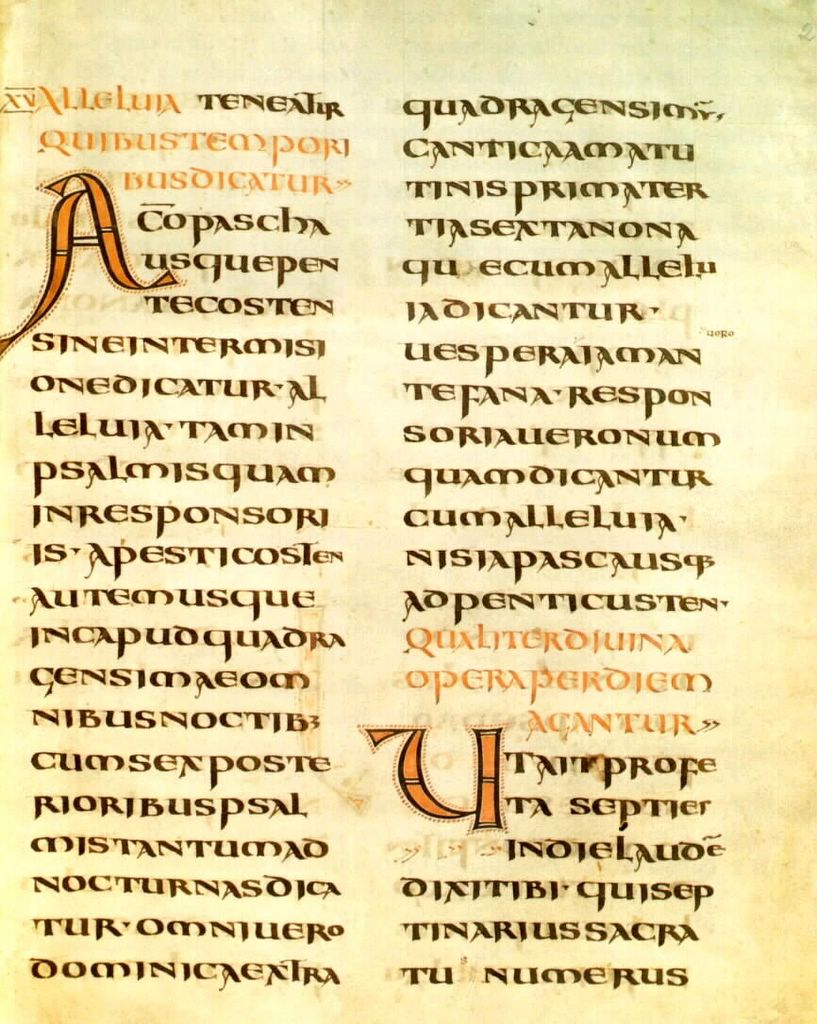 XV ALLELUIA TENEATUR
QUIBUSTEMPORI
BUSDICATUR
A C̄O PASCHA
USQUEPEN
TECOSTEN
SINEINTERMISI
ONEDICATUR·AL
LELUIA·TAMIN
PSALMISQUAM
INRESPONSORI
IS·APESTICOSTEN
AUTEMUSQUE
INCAPUDQUADRA
GENSIMAEOM
NIBUSNOCTIB;
CUMSEXPOSTE
RIORIBUSPSAL
MISTANTUMAD
NOCTURNASDICA
TUR·OMNIUERO
DOMINICAEXTRA
QUADRAGENSIM
CANTICAAMATU
TINISPRIMATER
TIASEXTANONA
QU ECUMALLELU
IADICANTUR·
UERO
UESPERAIAMAN
TEFANA·RESPON
SORIAUERONUM
QUAMDICANTUR
CUMALLELUIA·
NISIAPASCAUSQ
ADPENTICUSTEN·
QUALITERDIUINA
OPERAPERDIEM
AGANTUR
UTAITPROFE
TA SEPTIES
INDIELAUDĒ
DIXITIBI·QUISEP
TINARIUSSACRA
TU S NUMERUS